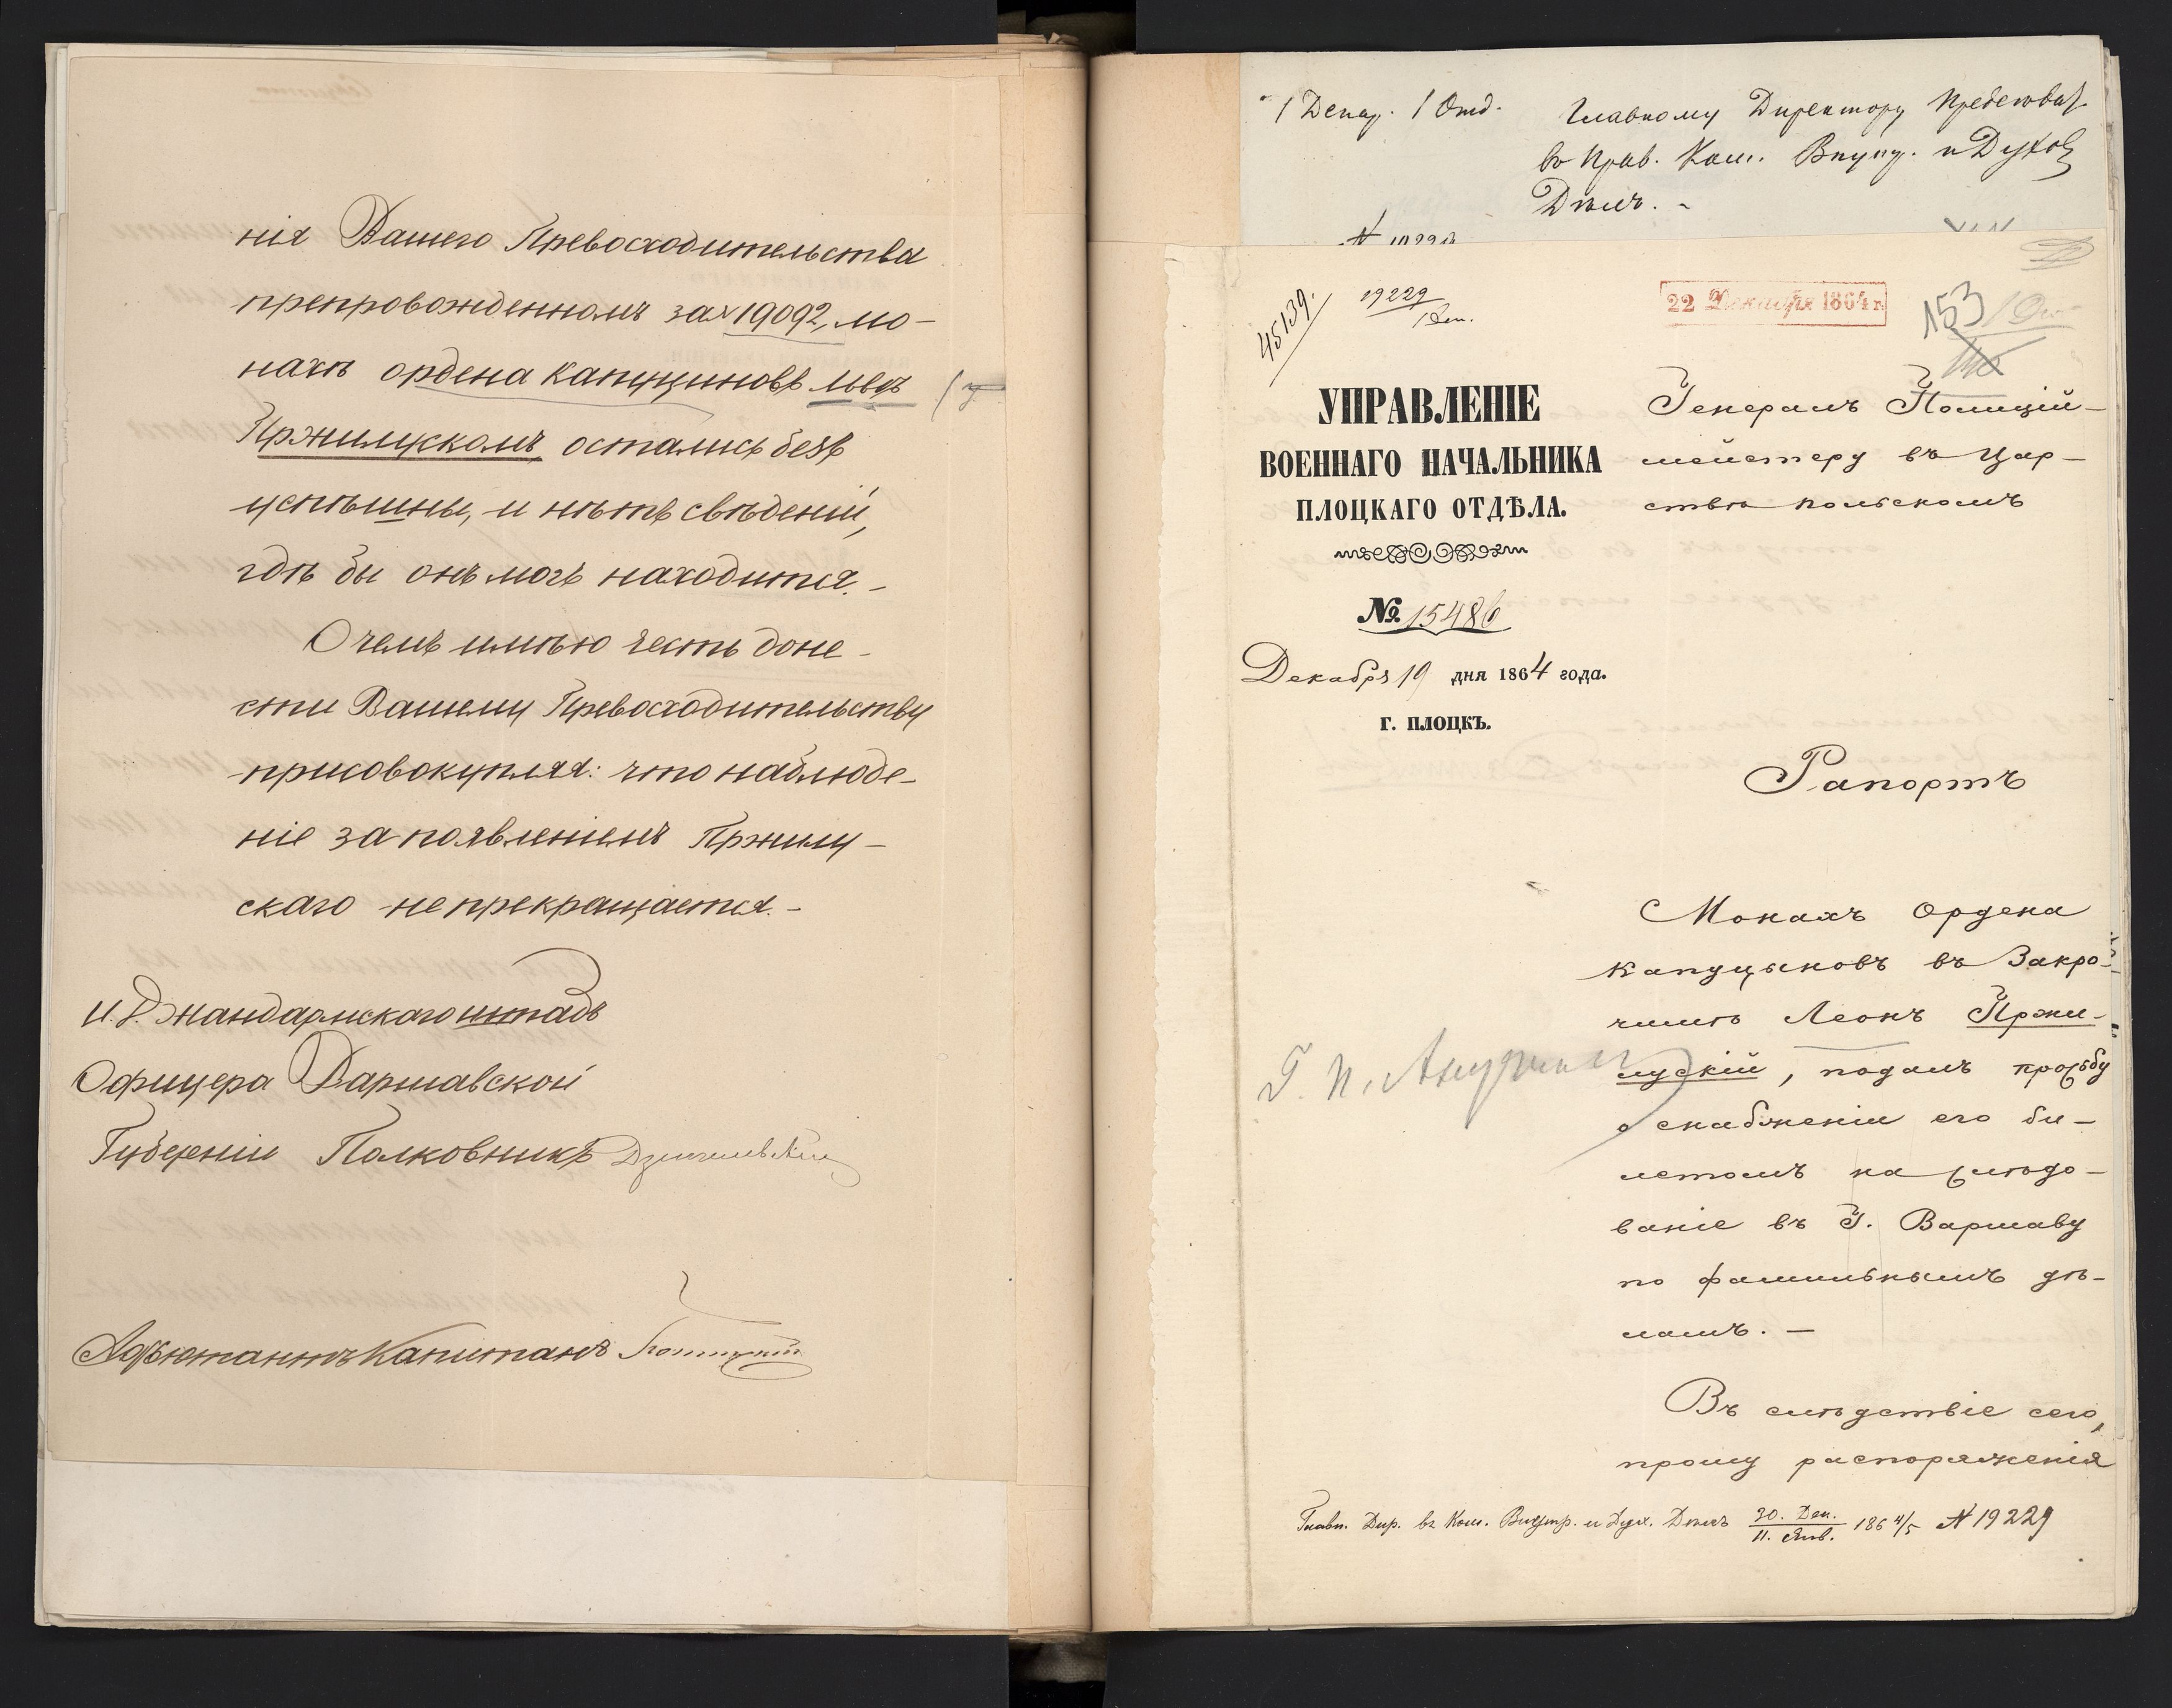 нія Вашего Превосходительства
препровожденномъ за № 19092, мо-
нахѣ ордена капуциновъ Львѣ
Пржилускомъ, остались безъ
успѣшны, и нѣтъ свѣденій,
гдѣ бы онъ могъ находится.-
О чемъ имѣю честь доне-
сти Вашему Превосходительству
присовокупляя: что наблюде-
ніе за появленіемъ Пржилу-
скаго не прекращается.-
И. Д. Жандармскаго штабъ
Офицера Варшавской
Губерніи Полковникъ
Адъютантъ Капитанъ
1 Депар. 1 Отд.
Главному Директору Предсѣдат.
въ Прав. Ком. Внутр. и Духов
Дѣлъ. -
N 19229
45139.
19229
1 Деп.
22 Декабря 1864 г.
153
УПРАВЛЕНІЕ
ВОЕННАГО НАЧАЛЬНИКА
ПЛОЦКАГО ОТДѢЛА.
№ 15486
Декабря 19 дня 1864 года.
Г. ПЛОЦКЪ.
Генералъ Полицій-
мейстеру въ Цар-
ствѣ польскомъ
Рапортъ
Монахъ Ордена
капуциновъ въ Закро-
чимѣ Леонъ Пржи-
лускій, подалъ просьбу
о снабженіи его би-
летомъ на слѣдо-
ваніе въ Г. Варшаву
по фамильнымъ дѣ-
ламъ. -
Въ слѣдствіе сего,
прошу распоряженія
Г. П.
Главн. Дир. въ Ком. Внутр. и Дух. Дѣлъ 30. Дек. / 11. Янв. 186 4/5 N 19229